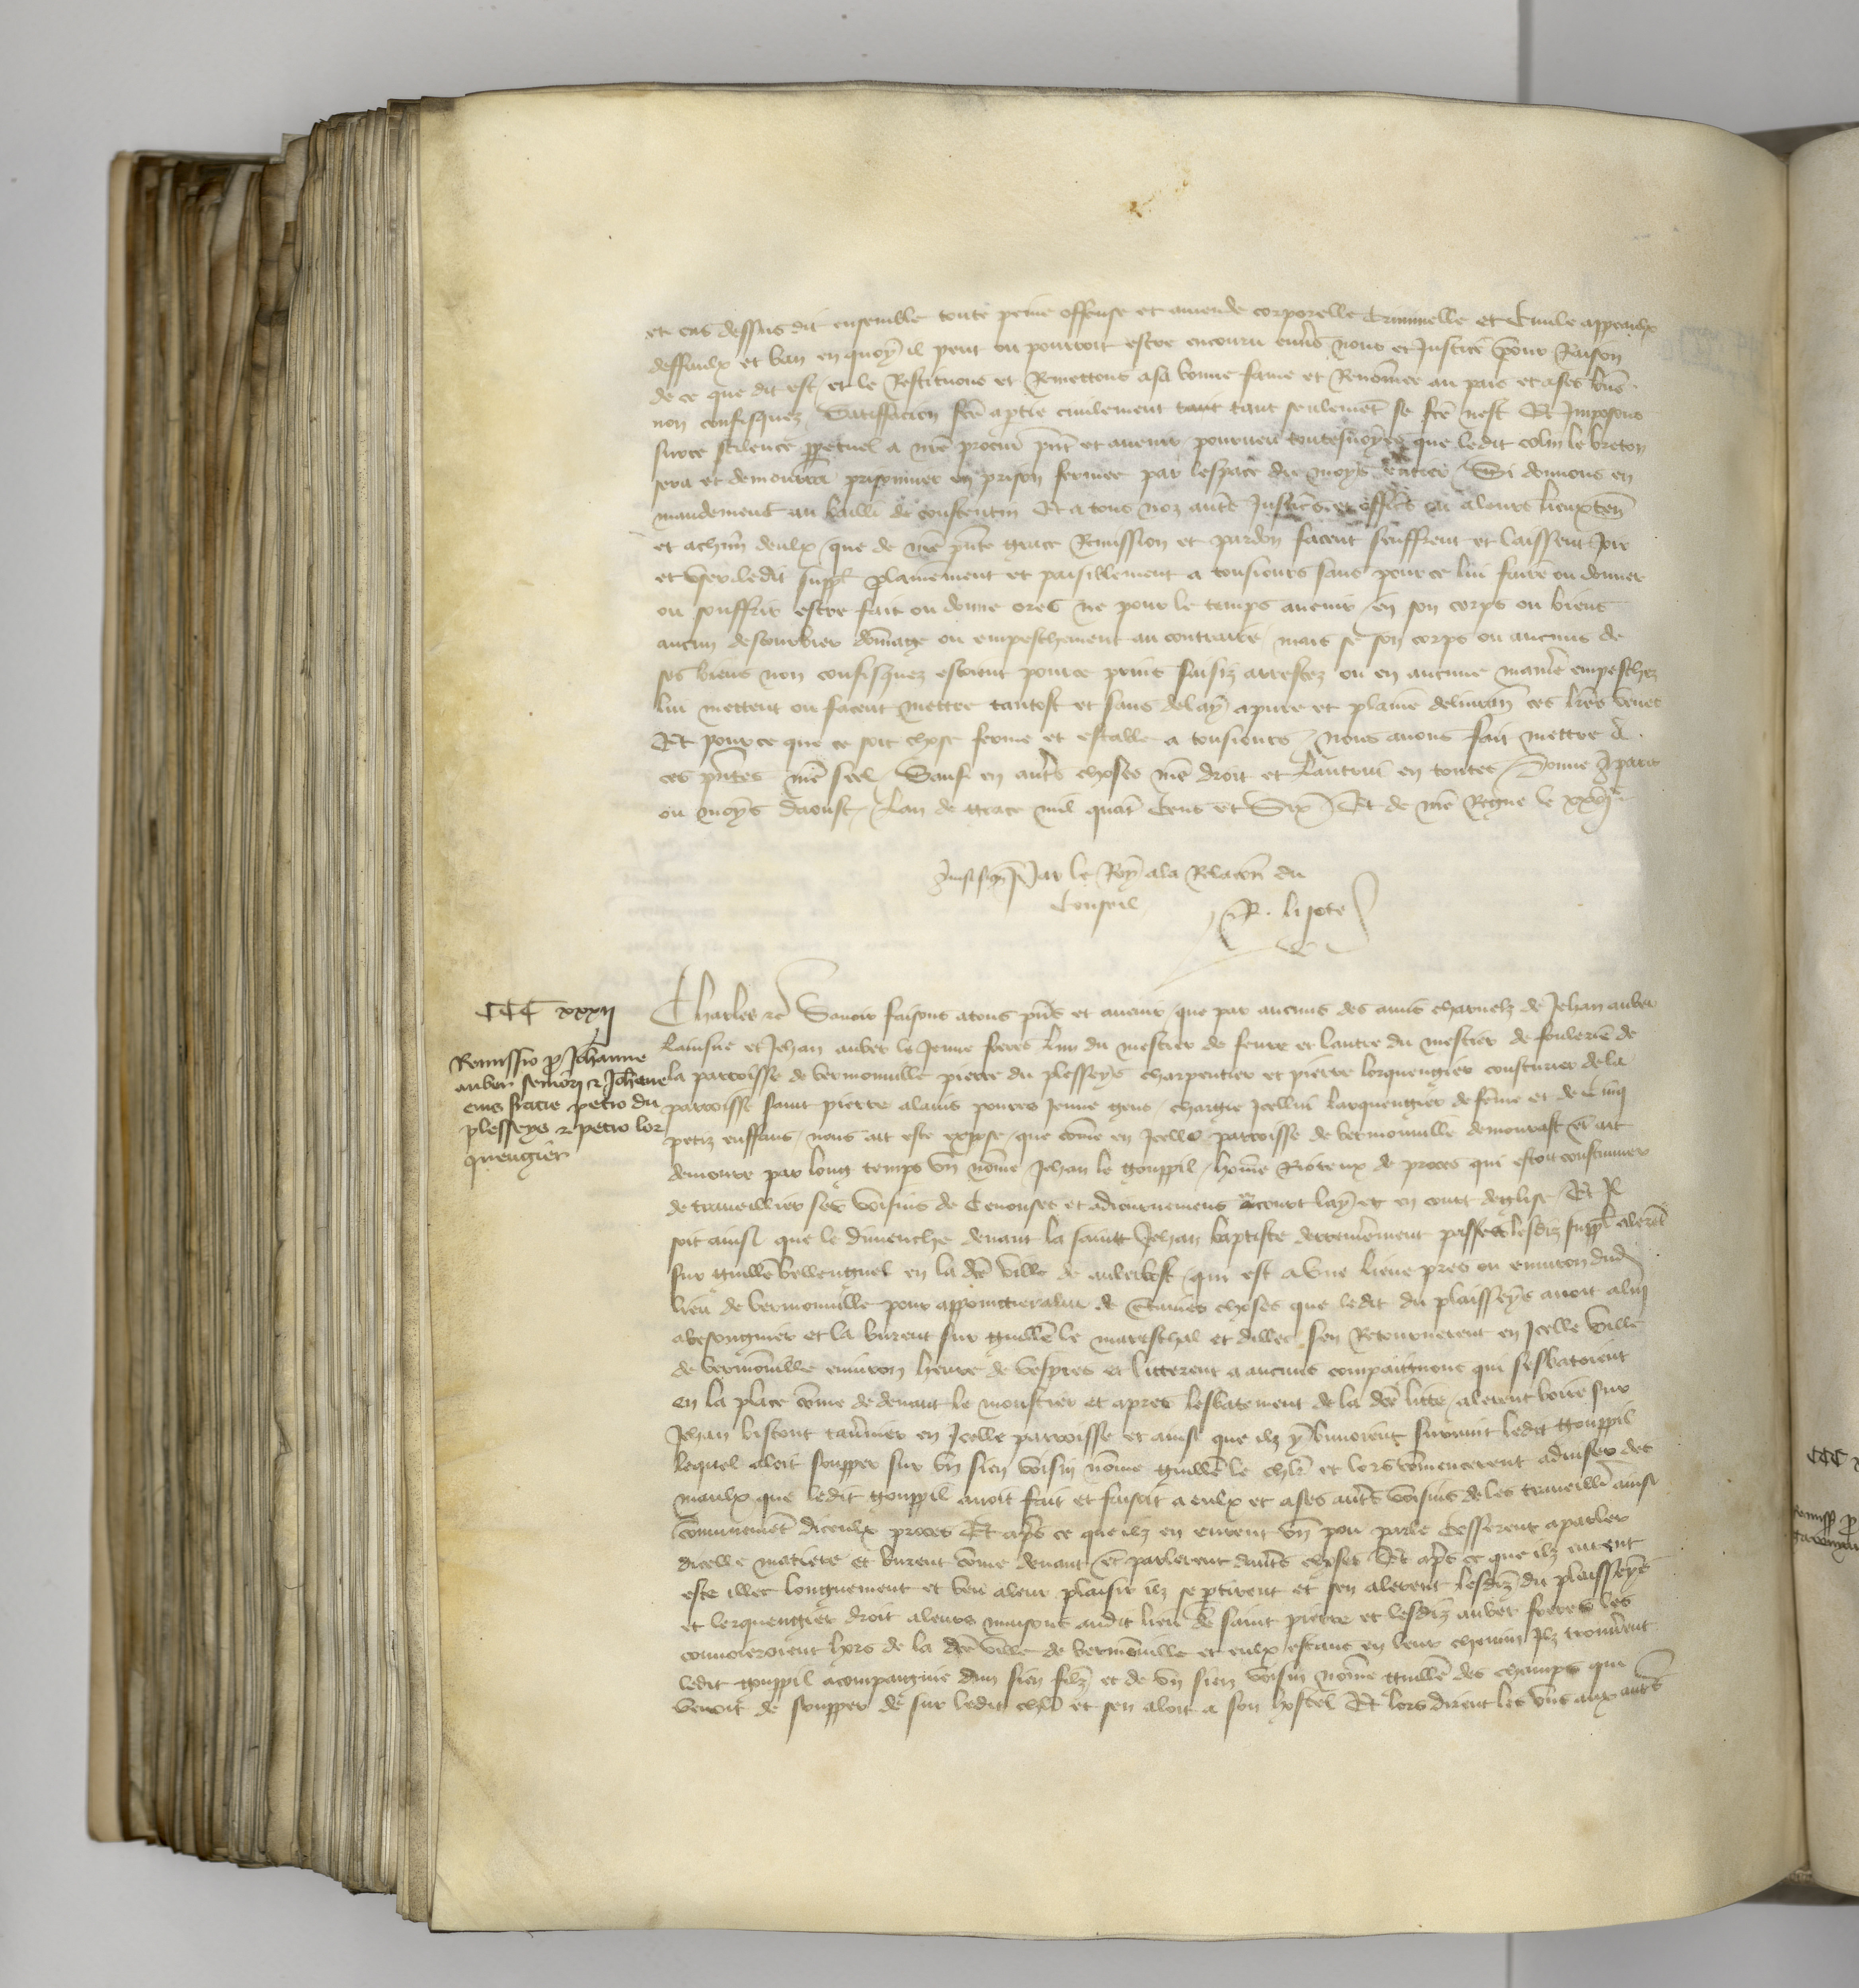 et cas dessus dit ensemble toute peine offense et amende corporelle Criminelle et Ciuile appeaulx
deffaulx et ban en quoy il peut ou pourroit estre encouru enuers nous et Justice pour Raison
de ce que dit est et le Restituons et Remettons a sa bonne fame et Renommee au pais et a ses biens
non confisquez Satiffacion fcte a partie ciuilement tant tant seulement se fcte nest Et Imposons
sur ce silence perpetuel a nre procur pnt et auenir pourueu toutesuoyes que ledit colin le breton
sera et demourra prisonnier en prison fermee par lespace du moys entier Si donnons en
mandement au bailli de constentin Et a tous noz autres Justiciers et officiers ou a leurs lieuxten
et a chun deulx que de nre pnte grace Remission et pardon facent seuffrent et laissent Joir
et vser ledit suppl plainement et paisiblement a tousiours sans pour ce lui faire ou donner
ou souffrir estre fait ou donne ores ne pour le temps auenir en son corps ou biens
aucun destourbier dommage ou empeschement au contraire mais se son corps ou aucuns de
ses biens non confisquez estoient pour ce prins saisiz arrestez ou en aucune maniere empeschez
lui mettent ou facent mettre tantost et sans delay a pure et plaine deliuran ces lres veues
Et pour ce que ce soit chose ferme et estable a tousiours nous auons fait mettre a
ces pntes nre seel Sauf en autres choses nre droit et lautrui en toutes Donne a paris
ou moys daoust Lan de grace mil quatre Cens et Six Et de nre Regne le xxvje
Ainsi signe Par le Roy a la Relacion du
Conseil R. lijote
CCC xxxij
Remissio pro Johanne
auber seniori et Johanne
eius fratre petro du
plesseys et petro lor
quengier
Charles etc Sauoir faisons a tous pns et auenir que par aucuns des amis charnelz de Jehan auber
lainsne et Jehan auber le Jenne freres lun du mestier de feure et lautre du mestier de foulerie de
la parroisse de bermonuille pierre du plesseys charpentier et pierre lorquengier cousturier de la
parroisse saint pierre alauis poures Jenne gens chargie Icellui lorquengier de femme et de Cinq
petiz enffans nous ait este expose que comme en Icelle parroisse de bermonuille demourast et ait
demoure par long temps vn nomme Jehan le gouppil homme Rioteux de proces qui estoit coustumier
de traueillier ses voisins de Cenonses et adiournemens a court laye et en court deglise Et Il
soit ainsi que le dimenche deuant la saint Jehan baptiste derrenierement passee lesdiz suppl alerent
sur guille bellenguel en la dce ville de auberbosc qui est a vne lieue pres ou enuiron dud
lieu de bermonuille pour appointier a lui de Ctaines choses que ledit du plaisseys auoit a lui
a besongnier et la burent sur guille le mareschal et dillec sen Retournerent en Icelle ville
de bermonuille enuiron heure de vespres et litterent a aucuns compaignons qui sesbatoient
en la place comme de deuant le moustier et apres lesbatement de la dce litte alerent boire sur
Jehan bistout tauernier en Icelle parroisse et ainsi que ilz y buuoient suruint ledit gouppil
lequel aloit soupper sur vn sien voisin nomme guille le chlr et lors commencerent a diuiser des
maulx que ledit gouppil auoit fait et faisoit a eulx et a ses autres voisins de les traueillier ainsi
communement diceulx proces Et apres ce que ilz en eurent vn pou parle Cesserent a parler
dicelle matiere et burent comme deuant et parlerent dautres choses Et apres ce que ilz eurent
este illec longuement et beu a leur plaisir ilz se partirent et sen alerent lesdiz du plaisseys
et lorquengier droit a leurs maisons audit lieu de saint pierre et lesdiz auber freres les
conuoieroient hors de la dce ville de bermonuille et eulx estans en leur chemin Ilz trouuerent
ledit gouppil acompaignie dun sien filz et de vn sien voisin nomme guille des champs que
venoit de soupper de sur ledit chlr et sen aloit a son hostel Et lors dirent les vns aux autres